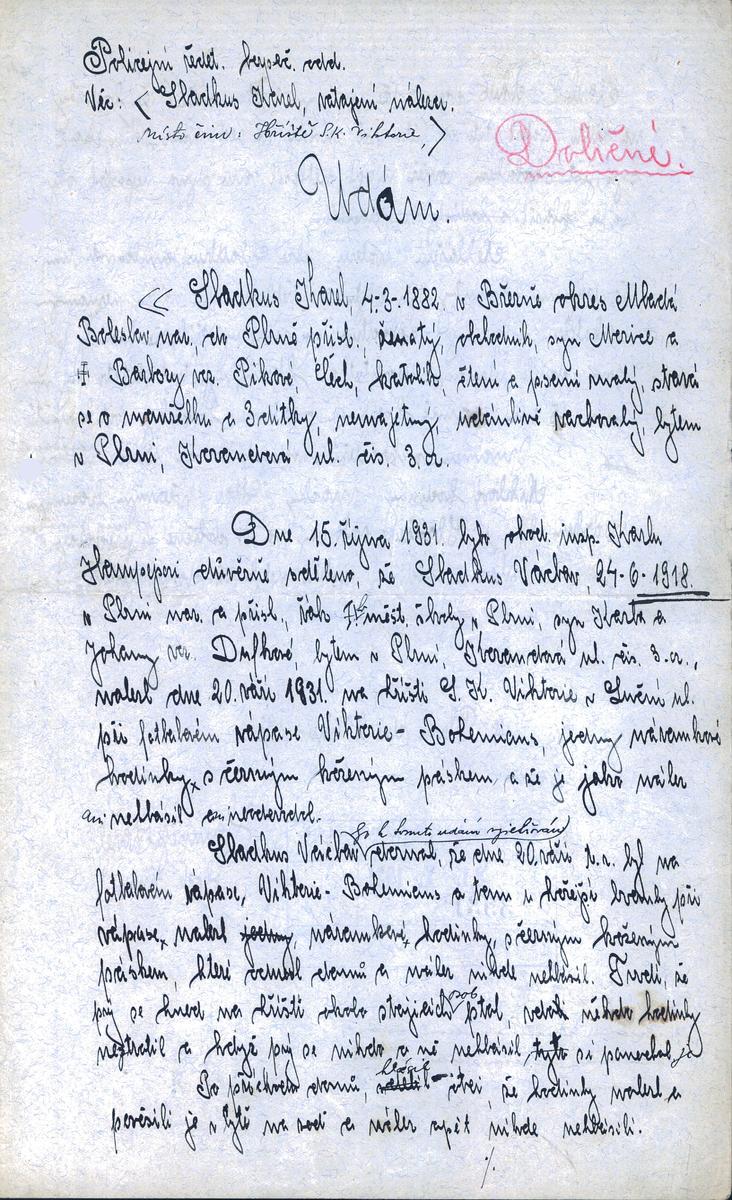 Policejní ředit. bezpeč. odd.
Věc: Sladkus Karel, zatajení nálezu.
místo činu: Hřiště S.K. Viktorie,
Doličné.
Udání.
Sladkus Karel, 4-3-1882 v Březně okres Mladá
Boleslav nar., do Plzně přísl., ženatý, obchodník, syn Morice a
Barbory roz. Pikové Čech, katolík, čtení a psaní znalý, stará
se o manželku a 3 dítky, nemajetný, udánlivě zachovalý, bytem
v Plzni, Korandová ul. čís. 3.a.
Dne 15. října 1931 bylo obvod. insp. Karlu
důvěrně sděleno, že Sladkus Václav, 24-6-1918.
v Plzni nar. a přísl., žák měšť. školy v Plzni, syn Karla a
Johany roz. Dufkové, bytem v Plzni, Korandová ul. čís. 3.a.,
nalezl dne 20. září 1931 na hřišti S. K. Viktorie v Luční ul.
při fotbalovém zápase Viktorie - Bohemians, jedny náramkové
hodinky s černým koženým páskem a že je jako nález
ani nehlásil ani neodevzdal.
jso k tomuto udání vyšetřován
Sladkus Václav doznal, že dne 20. září t.r. byl na
fotbalovém zápase, Viktorie - Bohemians a tam u hořejší branky při
zápase nalezl jedny, náramkové hodinky, s černým koženým
páskem, které odnesl domů a nález nikde nehlásil. Tvrdí, že
prý se hned na hřišti okolo stojících osob ptal, zdali někdo hodinky
neztratil a když prý se nikdo o ně nehlásil tyto si ponechal.
Po příchodu domů, hlásil otci, že hodinky nalezl a
pověsili je v bytě na zeď a nález opět nikde nehlásili.
./.